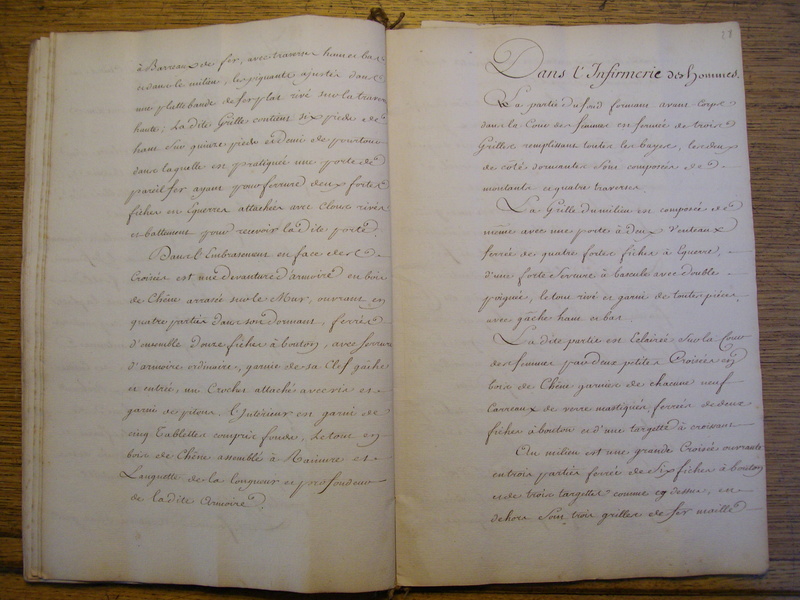 à Barreaux de fer, avec traverse haut et bas
et dans le milieu, les piquants ajustés dans
une platte bande de fer plat rivé sur la traverse
haute; La dite Grille contient six pieds de
haut sur quinze pieds et demi de pourtour
dans laquelle est pratiquée une porte de
pareil fer ayant pour ferrure deux fortes
fiches en Equerres attachées avec Cloux rivés
et battement pour recevoir la dite porte.
Dans l'Embrasement en face de la
Croisée est une devanture d'armoire en bois
de Chêne arrasée sur le Mur, ouvrant en
quatre parties dans son dormant, ferrée
d'ensemble douze fiches à bouton, avec serrure
d'armoire ordinaire, garnie de sa Clef gâche
et entrée, un Crochet attaché avec vis et
garni de pitons. L'Intérieur est garni de
cinq Tablettes compris fonds, Le tout en
bois de Chêne assemblé à Rainure et
Languette de la longueur et profondeur
de la dite armoire.
28
Dans l'Infirmerie des hommes.
La partie du fond formant avant Corps
dans la Cour des femmes est fermée de trois
Grilles remplissant toutes les bayes, les deux
de côté dormantes sont composées de
montants et quatre traverses.
La Grille du milieu est composée de
mêmes avec une porte à Deux Venteaux
ferrée de quatre fortes fiches à Equerre,
d'une forte Serrure à bascule avec double
poignée, le tout rivé et garni de toutes pièces,
avec gâches haut et bas.
La dite partie est Eclairée sur la Cour
des femmes par deux petites Croisées en
bois de Chêne garnies de chacune neuf
Carreaux de verre mastiqués, ferrées de deux
fiches à bouton et d'une targette à croissant
Au milieu est une grande Croisée ouvrante
en trois parties ferrée de Six fiches à bouton
et de trois targettes comme cy dessus, en
dehors sont trois grilles de fer maillé